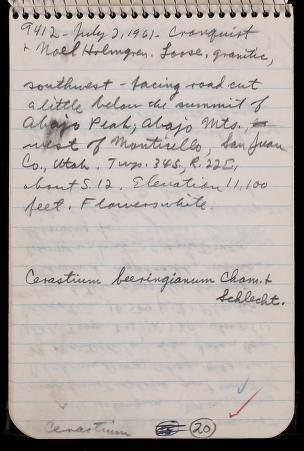 9412 - July 2, 1961 - Cronquist
+ Noel Holmgren. Loose, granitic,
southwest-facing road cut
a little below the summit of
Abajo Peak, Abajo Mts.,
west of Monticello, San Juan
Co., Utah. Twp. 34S, R. 22E,
about S. 12. Elevation 11,100
feet. Flowers white.
Cerastium beeringianum Cham. +
Schlecht.
Cerastium
20